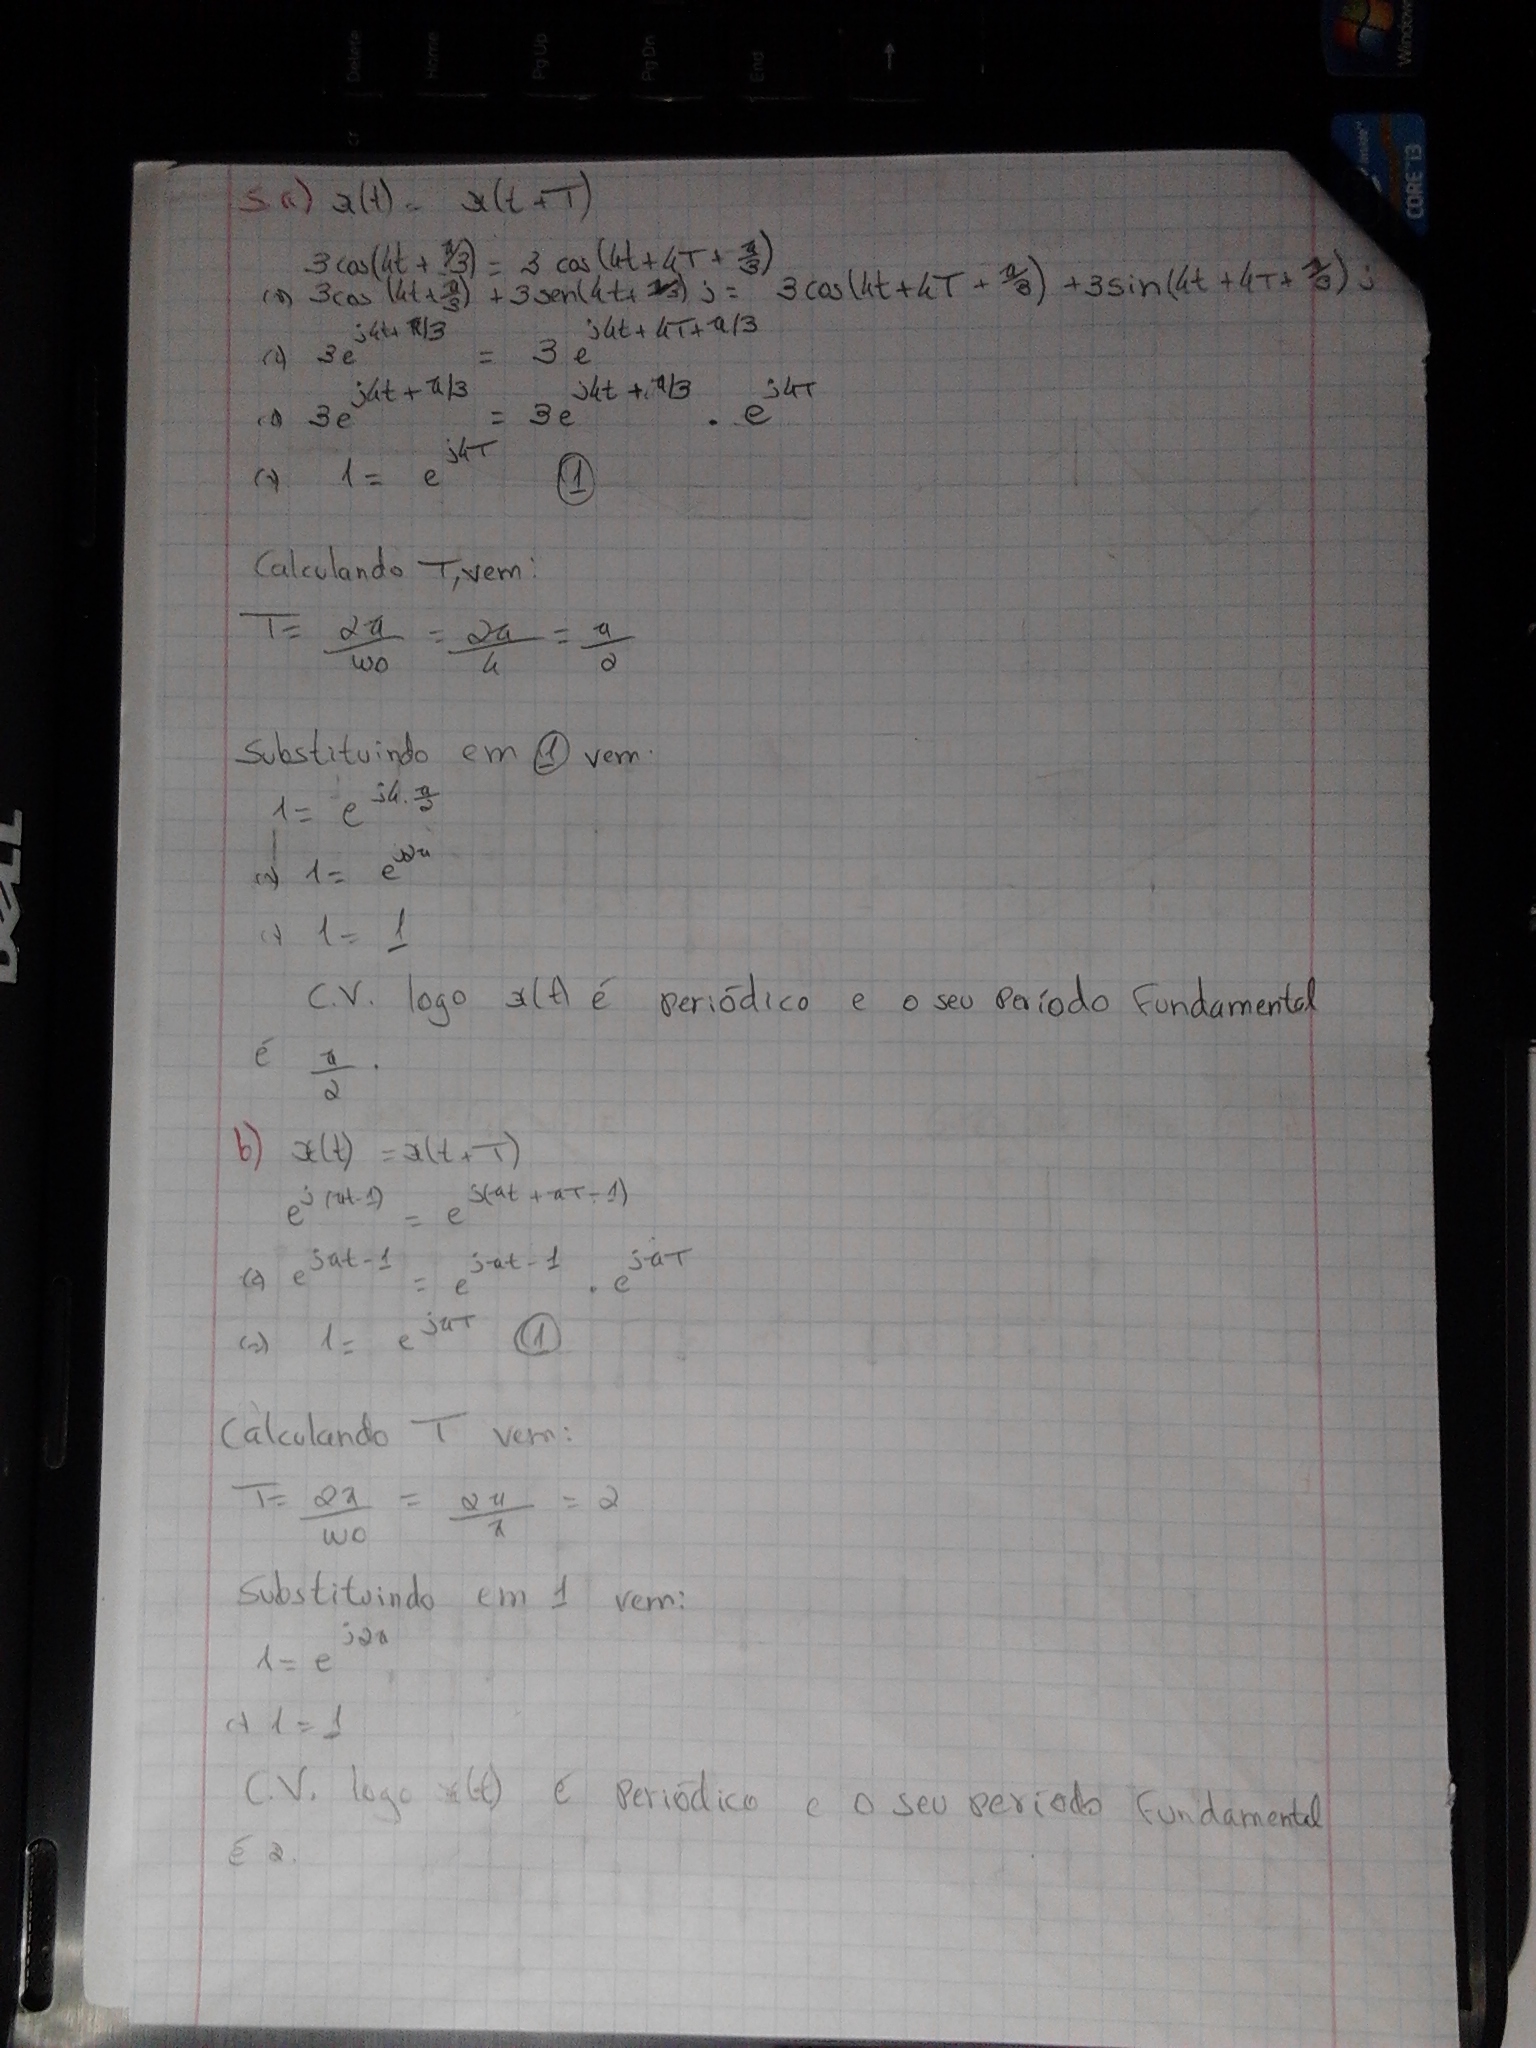 Delete Home Pg Up Pg Dn End ↑
Windows
inside™
CORE i3
DELL
5 a) x(t) = x(t+T)
3cos(4t + π/3) = 3 cos(4t+4T+π/3)
(=) 3cos(4t+π/3) + 3sen(4t+π/3) j = 3cos(4t+4T+π/3) + 3sin(4t+4T+π/3) j
(=) 3e^{j4t+π/3} = 3e^{j4t+4T+π/3}
(=) 3e^{j4t+π/3} = 3e^{j4t+π/3} . e^{j4T}
(=) 1 = e^{j4T} ①
Calculando T, vem:
T = 2π/w0 = 2π/4 = π/2
Substituindo em ① vem:
1 = e^{j4.π/2}
(=) 1 = e^{j2π}
(=) 1 = 1
C.V. logo x(t) é periódico e o seu período Fundamental
é π/2.
b) x(t) = x(t+T)
e^{j(πt-1)} = e^{j(πt+πT-1)}
(=) e^{jπt-1} = e^{jπt-1} . e^{jπT}
(=) 1 = e^{jπT} ①
Calculando T vem:
T = 2π/w0 = 2π/π = 2
Substituindo em 1 vem:
1 = e^{j2π}
(=) 1 = 1
C.V. logo x(t) é Periódico e o seu período Fundamental
é 2.